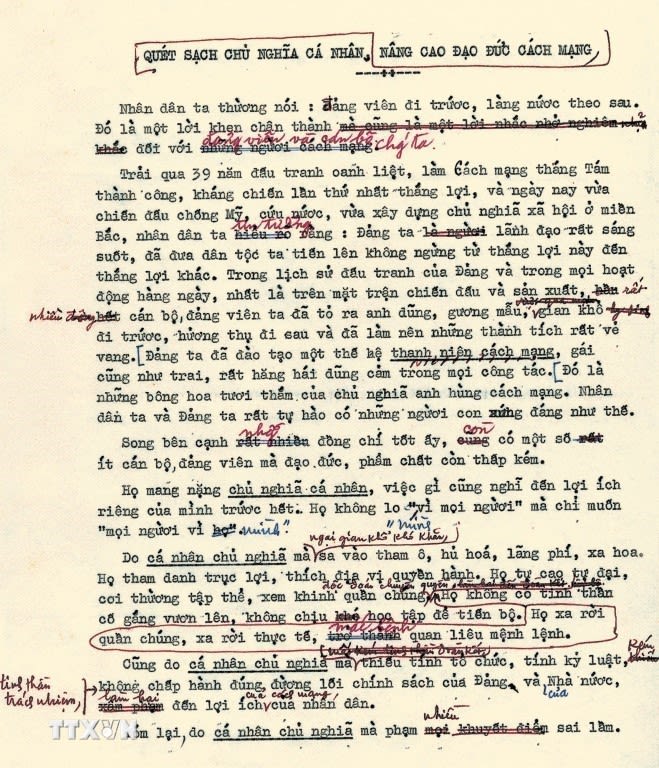 QUÉT SẠCH CHỦ NGHĨA CÁ NHÂN, NÂNG CAO ĐẠO ĐỨC CÁCH MẠNG
Nhân dân ta thường nói : đảng viên đi trước, làng nước theo sau.
Đó là một lời khen chân thành mà cũng là một lời nhắc nhở nghiêm
đảng viên và cán bộ chúng ta.
khắc đối với những người cách mạng
Trải qua 39 năm đấu tranh oanh liệt, làm Cách mạng tháng Tám
thành công, kháng chiến lần thứ nhất thắng lợi, và ngày nay vừa
chiến đấu chống Mỹ, cứu nước, vừa xây dựng chủ nghĩa xã hội ở miền
tin tưởng
Bắc, nhân dân ta hiểu rõ rằng : Đảng ta là người lãnh đạo rất sáng
suốt, đã đưa dân tộc ta tiến lên không ngừng từ thắng lợi này đến
thắng lợi khác. Trong lịch sử đấu tranh của Đảng và trong mọi hoạt
động hàng ngày, nhất là trên mặt trận chiến đấu và sản xuất, hầu rất
nhiều hết cán bộ, đảng viên ta đã tỏ ra anh dũng, gương mẫu, gian khổ
đi trước, hưởng thụ đi sau và đã làm nên những thành tích rất vẻ
vang. [Đảng ta đã đào tạo một thế hệ thanh niên cách mạng, gái
cũng như trai, rất hăng hái dũng cảm trong mọi công tác. [Đó là
những bông hoa tươi thắm của chủ nghĩa anh hùng cách mạng. Nhân
dân ta và Đảng ta rất tự hào có những người con xứng đáng như thế.
những còn
Song bên cạnh rất nhiều đồng chí tốt ấy, cũng có một số rất
ít cán bộ, đảng viên mà đạo đức, phẩm chất còn thấp kém.
Họ mang nặng chủ nghiã cá nhân, việc gì cũng nghĩ đến lợi ích
riêng của mình trước hết. Họ không lo "vì mọi người" mà chỉ muốn
"mọi người vì họ" mình." "mình
ngại gian khổ khó khăn,
Do cá nhân chủ nghiã mà sa vào tham ô, hủ hoá, lãng phí, xa hoa.
Họ tham danh trục lợi, thích địa vị quyền hành. Họ tự cao tự đại,
độc đoán chuyên quyền
coi thường tập thể, xem khinh quần chúng, Họ không có tinh thần
cố gắng vươn lên, không chịu khó học tập để tiến bộ. Họ xa rời
mắc bệnh
quần chúng, xa rời thực tế, trở thành quan liêu mệnh lệnh.
Cũng do cá nhân chủ nghiã mà thiếu tính tổ chức, tính kỷ luật, kém
tinh thần trách nhiệm, không chấp hành đúng đường lối chính sách của Đảng và Nhà nước,
làm hại của cách mạng, của
xâm phạm đến lợi ích của nhân dân.
nhiều
Tóm lại, do cá nhân chủ nghiã mà phạm mọi khuyết điểm sai lầm.
TTXVN